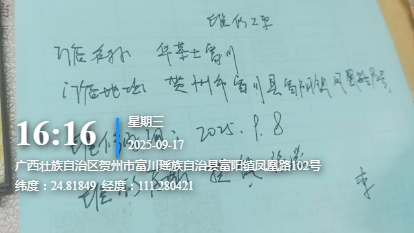 维修工单
门店名称 华莱士富川
门店地址 贺州市富川县富阳镇凤凰路
16:16
星期三
2025-09-17
维修时间：2025.9.8
广西壮族自治区贺州市富川瑶族自治县富阳镇凤凰路102号
纬度：24.81849 经度：111.280421
维修
李